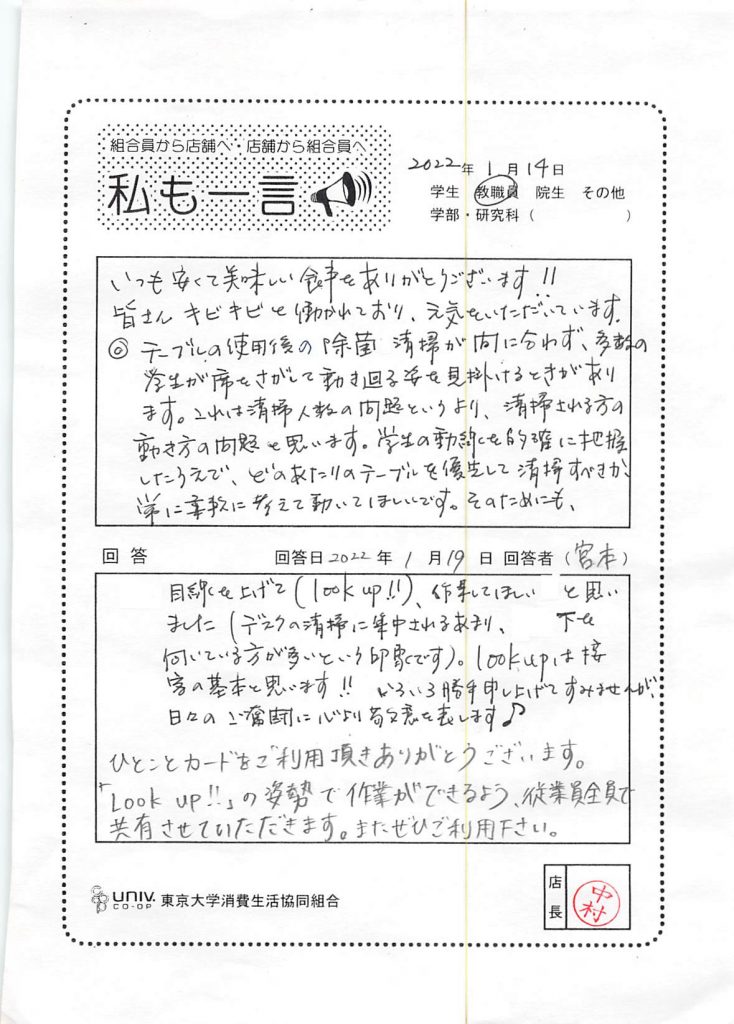 組合員から店舗へ・店舗から組合員へ
私も一言
2022年 1月14日
学生 教職員 院生 その他
学部・研究科( )
いつも安くて美味しい食事をありがとうございます!!
皆さんキビキビと働かれており、元気をいただいています。
◎テーブルの使用後の除菌清掃が間に合わず、多数の
学生が席をさがして動き回る姿を見掛けるときがあり
ます。これは清掃人数の問題というより、清掃される方の
動き方の問題と思います。学生の動線を的確に把握
したうえで、どのあたりのテーブルを優先して清掃すべきか、
常に柔軟に考えて動いてほしいです。そのためにも、
回答 回答日2022年 1月19日 回答者(宮本)
目線を上げて(look up!!)、作業してほしいと思い
ました(デスクの清掃に集中されるあまり、下を
向いている方が多いという印象です)。look upは接
客の基本と思います!! いろいろ勝手申し上げてすみませんが、
日々のご奮闘に心より敬意を表します♪
ひとことカードをご利用頂きありがとうございます。
「Look up!!」の姿勢で作業ができるよう、従業員全員で
共有させていただきます。またぜひご利用下さい。
UNIV. CO-OP 東京大学消費生活協同組合
店長 中村